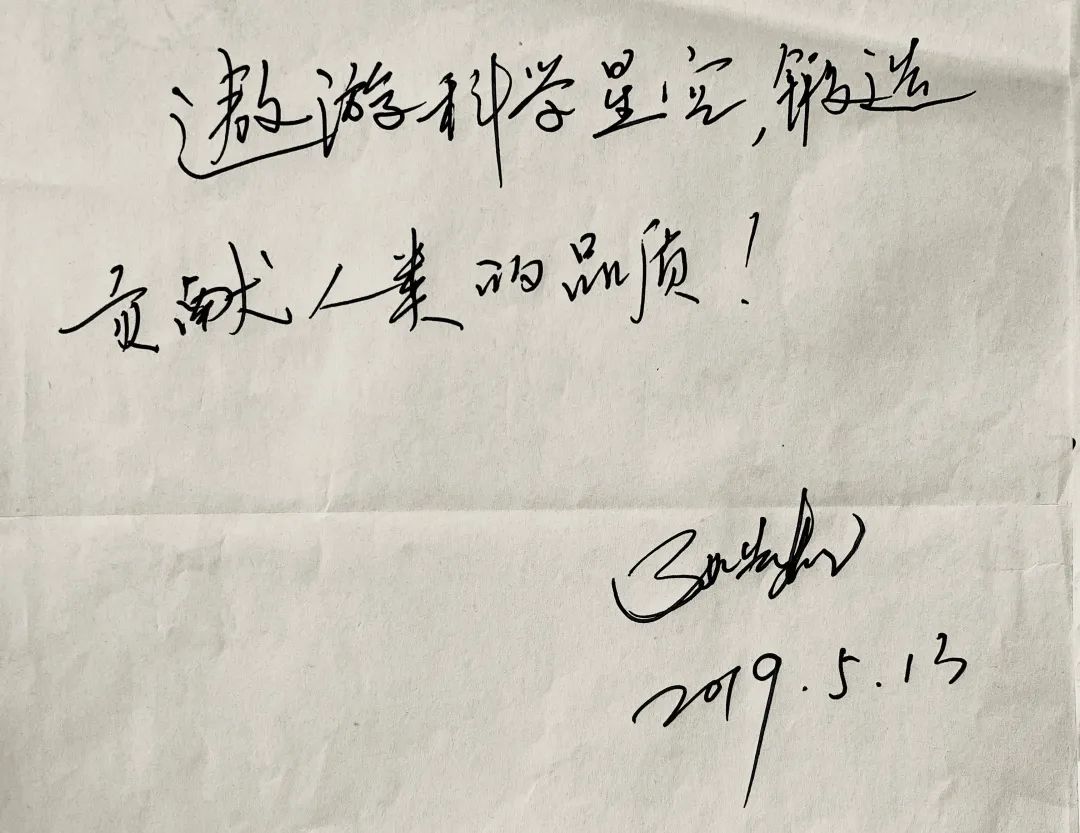 遨游科学星空,锻造
贡献人类的品质!
2019.5.13